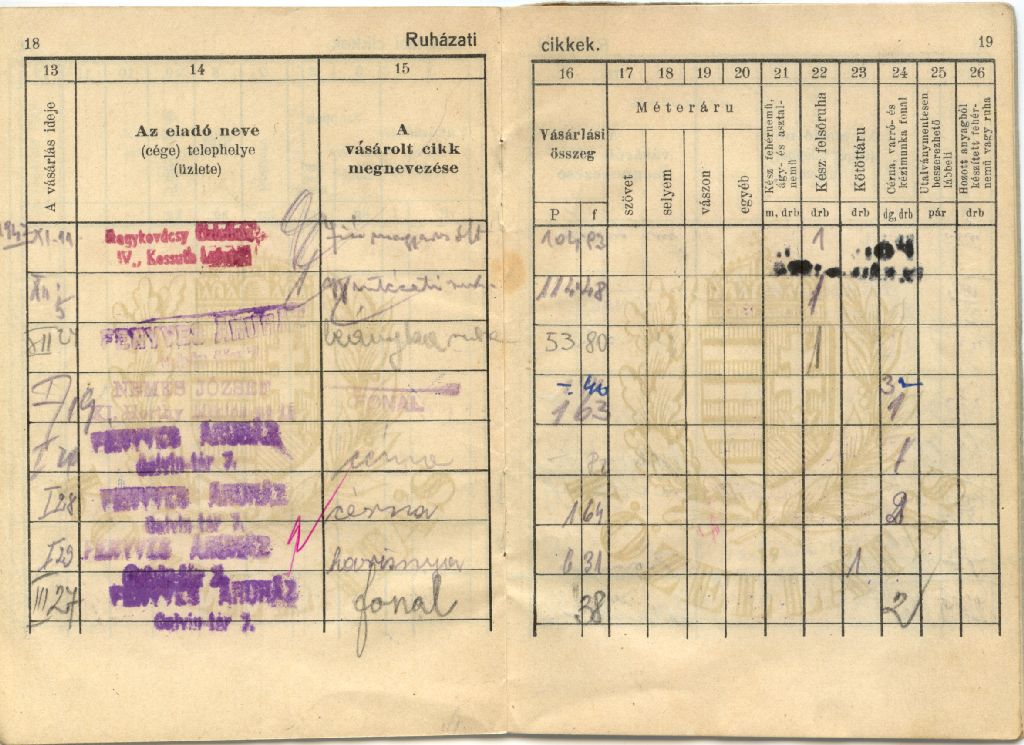 18
Ruházati
13
14
15
A vásárlás ideje
Az eladó neve
(cége) telephelye
(üzlete)
A
vásárolt cikk
megnevezése
cikkek.
19
16
17
18
19
20
21
22
23
24
25
26
Vásárlási
összeg
P
f
Méteráru
szövet
selyem
vászon
egyéb
Kész fehérnemű,
ágy- és asztal-
nemű
m, drb
Kész felsőruha
drb
Kötöttáru
drb
Cérna, varró- és
kézimunka fonal
dg, drb
Utalványmentesen
beszerezhető
lábbeli
pár
Hozott anyagból
készített fehér-
nemű vagy ruha
drb
XI. 11
Nagykovácsy
IV., Kossuth
104 93
1
XII. 5
114 48
1
XII 24
FENYVES ÁRUHÁZ
53 80
1
I/19
NEMES JÓZSEF
XI. Horthy
FONAL
1 63
1
FENYVES ÁRUHÁZ
Calvin-tér 7.
cérna
1
I 28
FENYVES ÁRUHÁZ
Calvin-tér 7.
cérna
1 64
2
I 29
FENYVES ÁRUHÁZ
Calvin-tér 7.
harisnya
6 31
1
III 27
FENYVES ÁRUHÁZ
Calvin-tér 7.
fonal
38
2